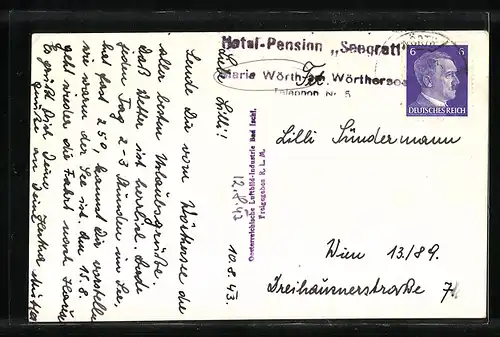 Hotel-Pension „Seegrott“
Maria Wörth am Wörthersee
Telephon Nr. 5
6 6
DEUTSCHES REICH
10.8.43.
Liebe Lilli!
Sende Dir vom Wörthersee die
allerbesten Urlaubsgrüße.
Das Wetter ist herrlich. Bade
jeden Tag 2-3 Stunden im See,
hat fast 25°, kannst Dir vorstellen
wie warm der See ist. Am 15.8.
geht wieder die Fahrt nach Hause
Es grüßt Dich Deine Hertha
Grüße an Deine Mutter
Oesterreichische Luftbild-Industrie Bad Ischl.
Freigegeben R. L. M.
Frl.
Lilli Sündermann
Wien 13./89.
Dreihausnerstraße 7